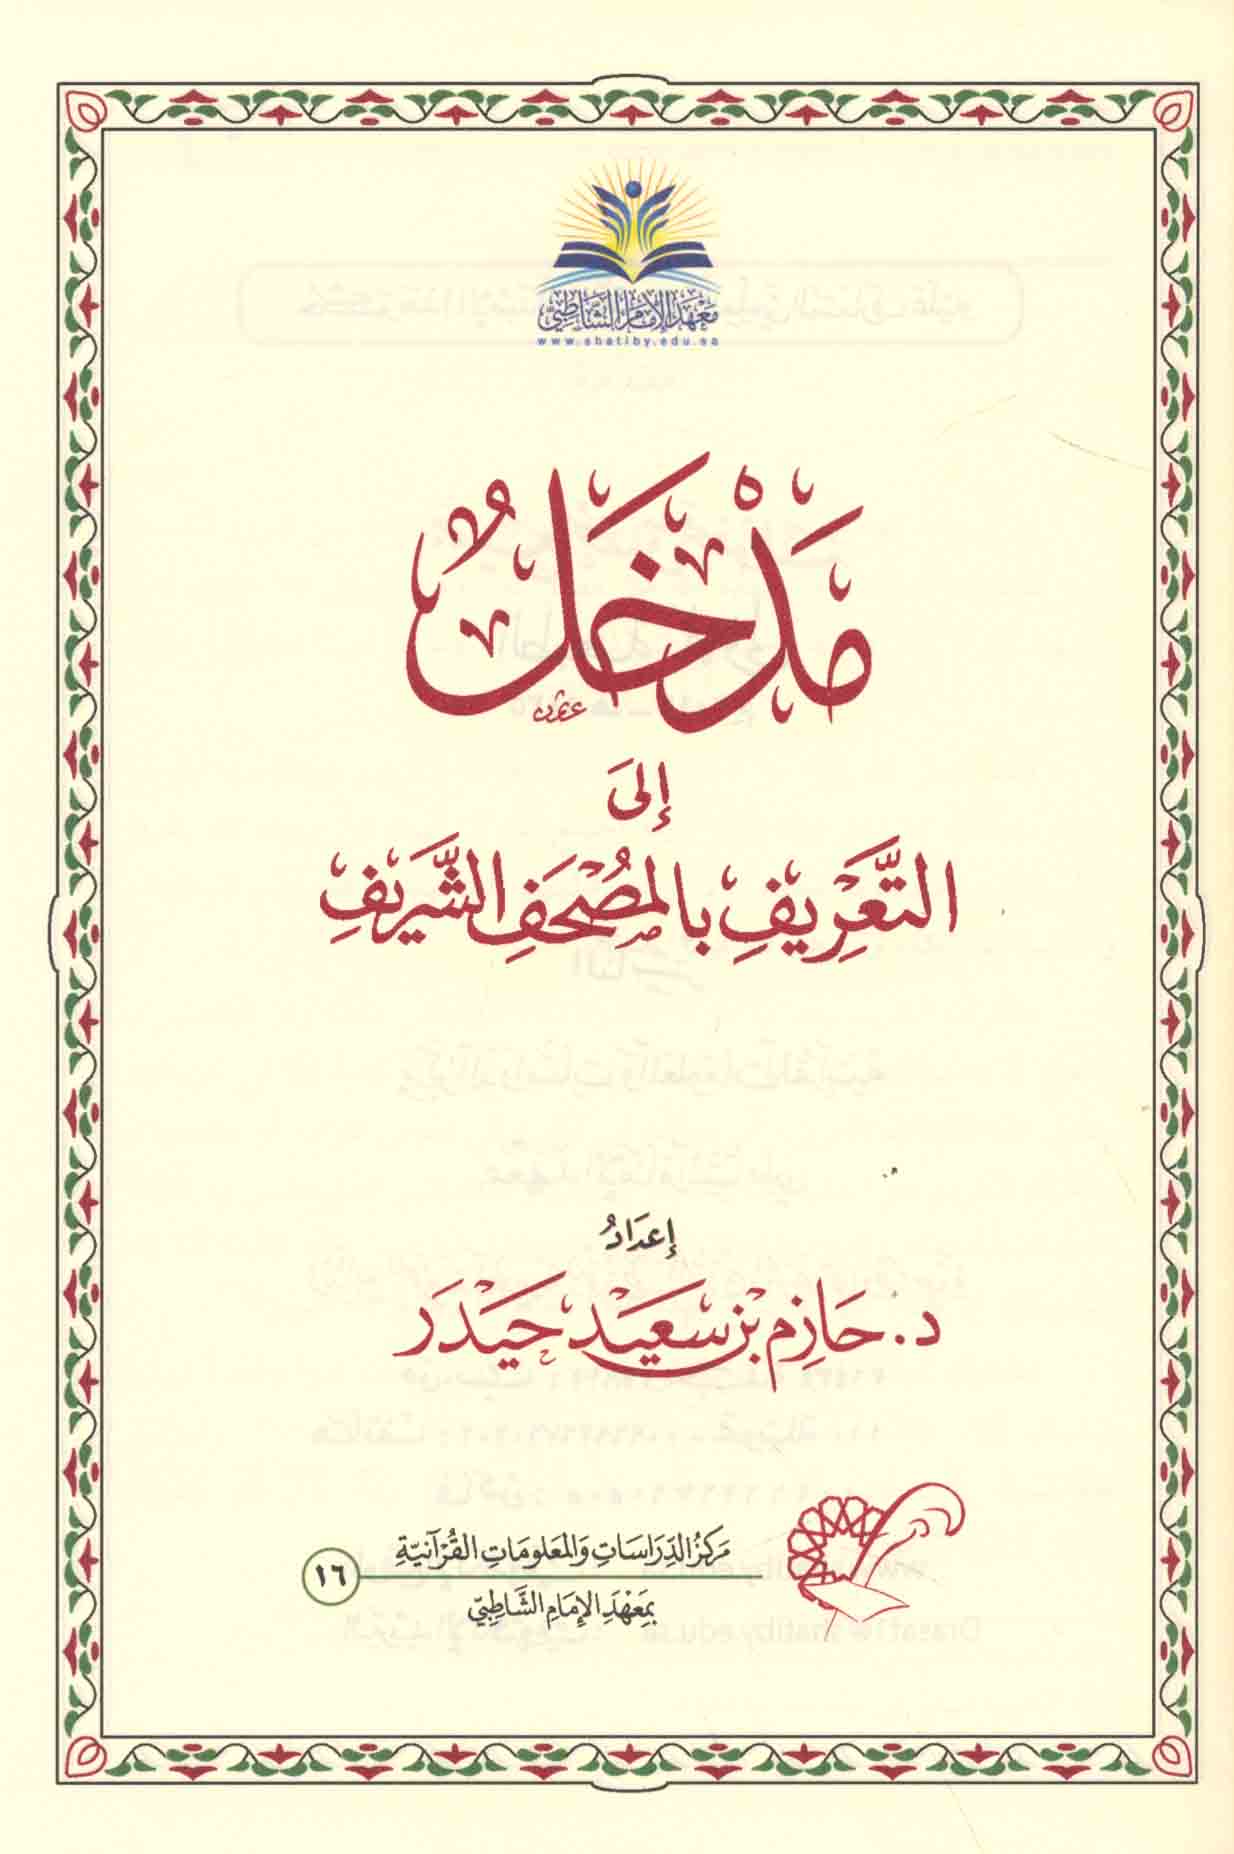 مَعْهَدُ الإِمَامِ الشَّاطِبِيِّ
www.shatiby.edu.sa
مَدْخَلٌ
إِلَى
التَّعْرِيفِ بِالمُصْحَفِ الشَّرِيفِ
إِعْدَادُ
د. حَازِم بْن سَعِيد حَيْدَر
مَركزُ الدِّرَاسَاتِ وَالمَعْلُومَاتِ القُرْآنِيَّةِ
١٦
بمَعْهَدِ الإِمَامِ الشَّاطِبِيِّ